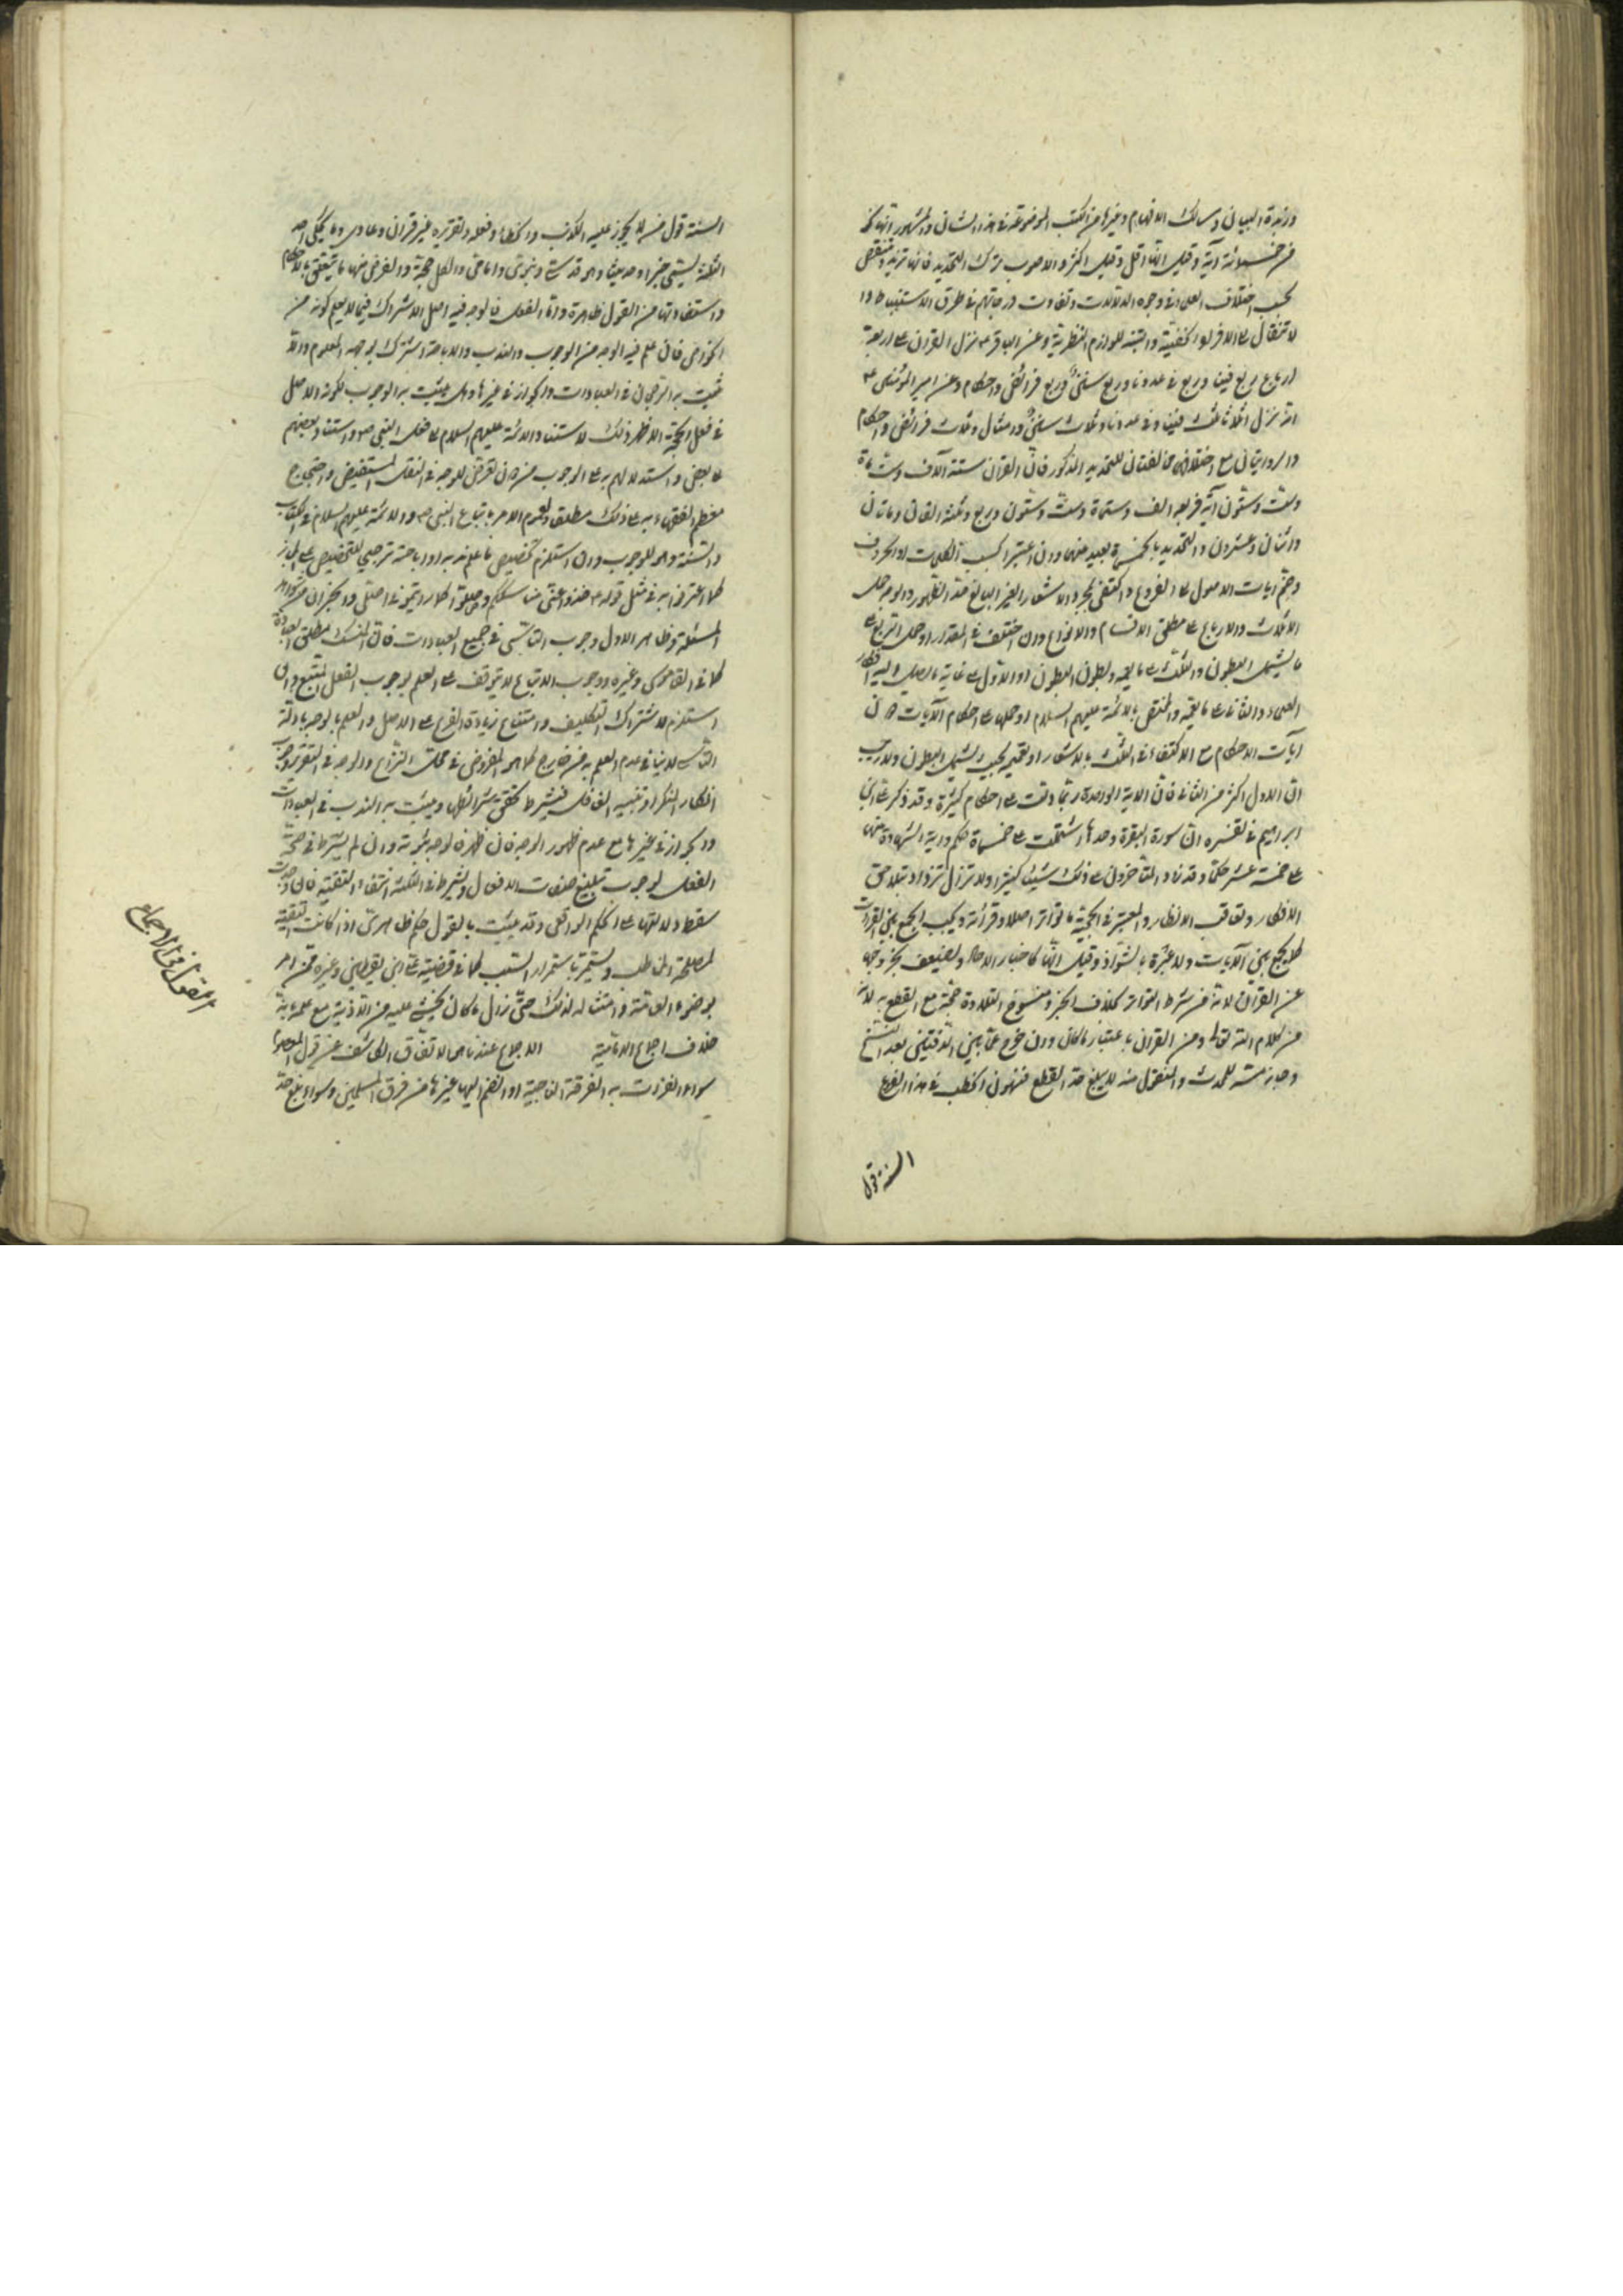 وزبدة البيان ومسالك الافهام وغيرها من الكتب الموضوعة في هذا الشان والمشهور انها نحو
من خمسمائة اية وقيل انها اقل وقيل اكثر والاصوب ترك التحديد فانها تزيد وتنقص
بحسب اختلاف العلماء في وجوه الدلالات وتفاوت درجاتهم في طرق الاستنباط والانتقال
الى الافراد الخفية والتنبه للوازم النظرية وعن الباقر ع نزل القران على اربعة
ارباع ربع فينا وربع في عدونا وربع سنن وربع فرائض واحكام وعن امير المؤمنين ع
انه نزل اثلاثا ثلث فينا وفي عدونا وثلث سنن وامثال وثلث فرائض واحكام
والروايتان مع اختلافهما مخالفتان للتحديد المذكور فان القران ستة آلاف وستمائة
وست وستون آية فربعه الف وستمائة وست وستون وربع وثلثه الفان ومائتان
واثنان وعشرون والتحديد بالخمسمائة بعيد منهما وان اعتبرا بحسب الكلمات او الحروف
وضم ايات الاصول الى الفروع واكتفى بمجرد الاشعار الغير البالغ حد الظهور والوجه حمل
الاثلاث والارباع على مطلق الاقسام والانواع وان اختلف في المقدار او حمل التربيع على
ما يشمل البطون والتثليث على ما يعمه وبطون البطون او الاول على غاية ما يصل اليه افكار
العلماء والثاني على ما يعمه والمختص بالائمة عليهم السلام او حملها على احكام الآيات لا
آيات الاحكام مع الاكتفاء في الثلث بالاشعار او تعميمه بحيث يشمل البطون ولا ريب
ان الاول اكثر من الثاني فان الاية الواحدة ربما دلت على احكام كثيرة وقد ذكر علي بن
ابراهيم في تفسيره ان سورة البقرة وحدها اشتملت على خمسمائة حكم واية الشهادة منها
على خمسة عشر حكما وقد زاد المتأخرون على ذلك شيئا كثيرا ولا تزال تزداد بتلاحق
الافكار وتعاقب الانظار والمعتبر في الحجية ما تواتر اصلا وقرائة ويجب الجمع بين القراءات
كما يجمع بين الآيات ولا عبرة بالشواذ وقيل انها كاخبار الاحاد ويضعف بخروجه
عن القران لانه من شرطه التواتر بخلاف الخبر ومنسوخ التلاوة حجة مع القطع به لانه
من كلام الله تعالى ومن القران باعتبار ما كان وان خرج عما بين الدفتين بعد النسخ
وجاز مسه للمحدث والمنقول منه لا يبلغ حد القطع فيهون الخطب في هذا الفرع
السنة قول
السنة قول من لا يجوز عليه الكذب والخطاء وفعله وتقريره غير قران وعادي وما يحكي احد
الثلثة يسمى خبرا وحديثا وهو قدسي ونبوي وامامي والكل حجة والغرض منها ما يتعلق بالاحكام
واستفادتها من القول ظاهرة واما الفعل فالوجه فيه اصل الاشتراك فيما لا يعلم كونه من
الخواص فان علم فيه الوجه من الوجوب والندب والاباحة اشترك بوجهه المعلوم والا
ثبت به الرجحان في العبادات والجواز في غيرها وهل يثبت به الوجوب لكونه الاصل
في فعل الحجة الاظهر ذلك لاستناد الائمة عليهم السلام الى فعل النبي ص واستناد بعضهم
الى بعض واستدلالهم به على الوجوب من دون تعرض للوجه في النقل المستفيض واحتجاج
معظم الفقهاء به على ذلك مطلقا ولعموم الامر باتباع النبي ص والائمة عليهم السلام في الكتاب
والسنة وهو للوجوب وان استلزم تخصيص ما علم ندبه او اباحته ترجيحا للتخصيص على المجاز
كما اعترفوا به في مثل قوله ع خذوا عني مناسككم وصلوا كما رايتموني اصلي والخبران من شواهد
المسئلة وظاهر الاول وجوب التاسي في جميع العبادات فان النسك مطلق العبادة
كما في القاموس وغيره ووجوب الاتباع لا يتوقف على العلم بوجوب الفعل المتبع وان
استلزم لاشتراك التكليف وامتناع زيادة الفرع على الاصل والعلم بالوجه بادلة
التاسي لا ينافي عدم العلم به من خارج كما هو المفروض في محل النزاع والوجه في التقرير وجوب
انكار المنكر وتنبيه الغافل فيشترط تحقق شرائطهما ويثبت به الندب في العبادات
والجواز في غيرها مع عدم ظهور الوجه فان ظهر فالوجه ثبوته وان لم يشترط في صحة
الفعل لوجوب تبليغ صفات الافعال ويشترط في الثلثة انتفاء التقية فان وجدت
سقط دلالتها على الحكم الواقعي وقد يثبت بالقول حكم ظاهري اذا كانت التقية
لمصلحة المخاطب ويستمر باستمرار السبب كما في قضية علي بن يقطين وغيره ممن امر
بوضوء العامة وامتثاله لذلك حتى زال ما كان يخشى عليه من الاذية مع علمه بانه
خلاف اجماع الامامية الاجماع عندنا هو الاتفاق الكاشف عن قول المعصوم
سواء انفردت به الفرقة الناجية او انضم اليها غيرها من فرق المسلمين وسواء بلغ حد
القول في الاجماع